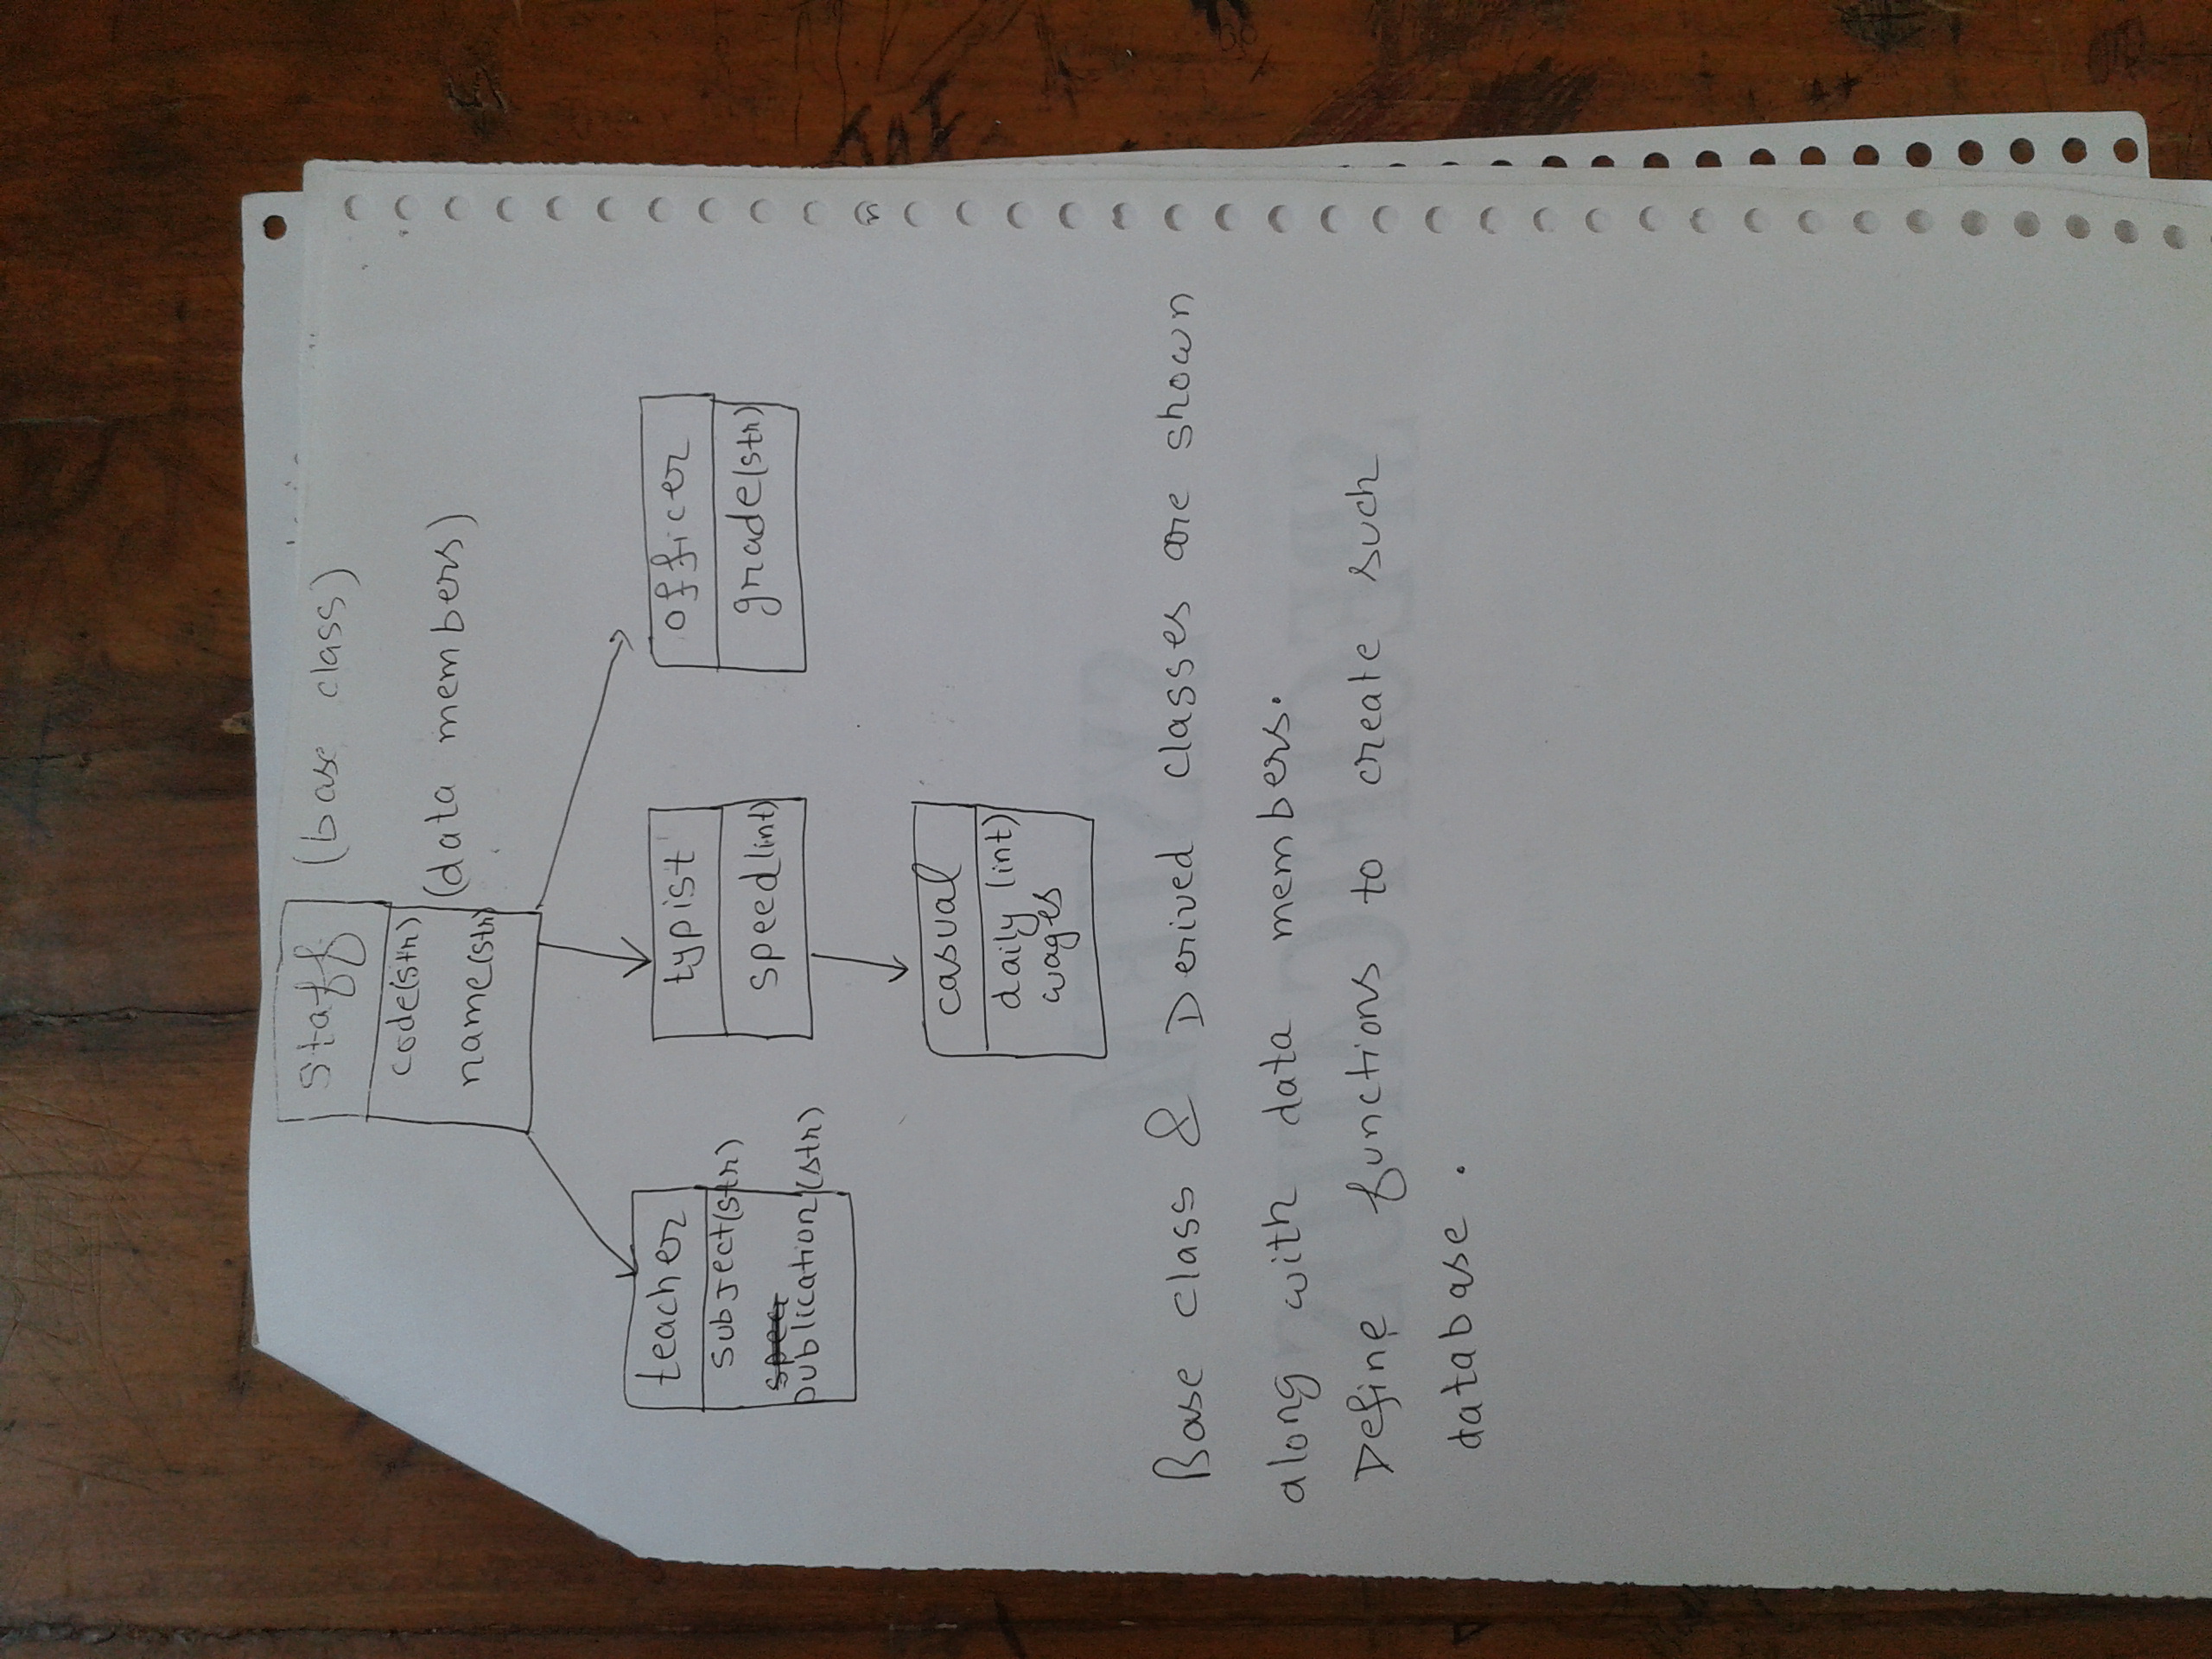 staff (base class)
code(str)
name(str) (data members)
teacher
subject(str)
publication(str)
typist
speed(int)
officer
grade(str)
casual
daily (int)
wages
Base class & Derived classes are shown
along with data members.
Define functions to create such
database.
SYSTEM
SPECIFICATIONS